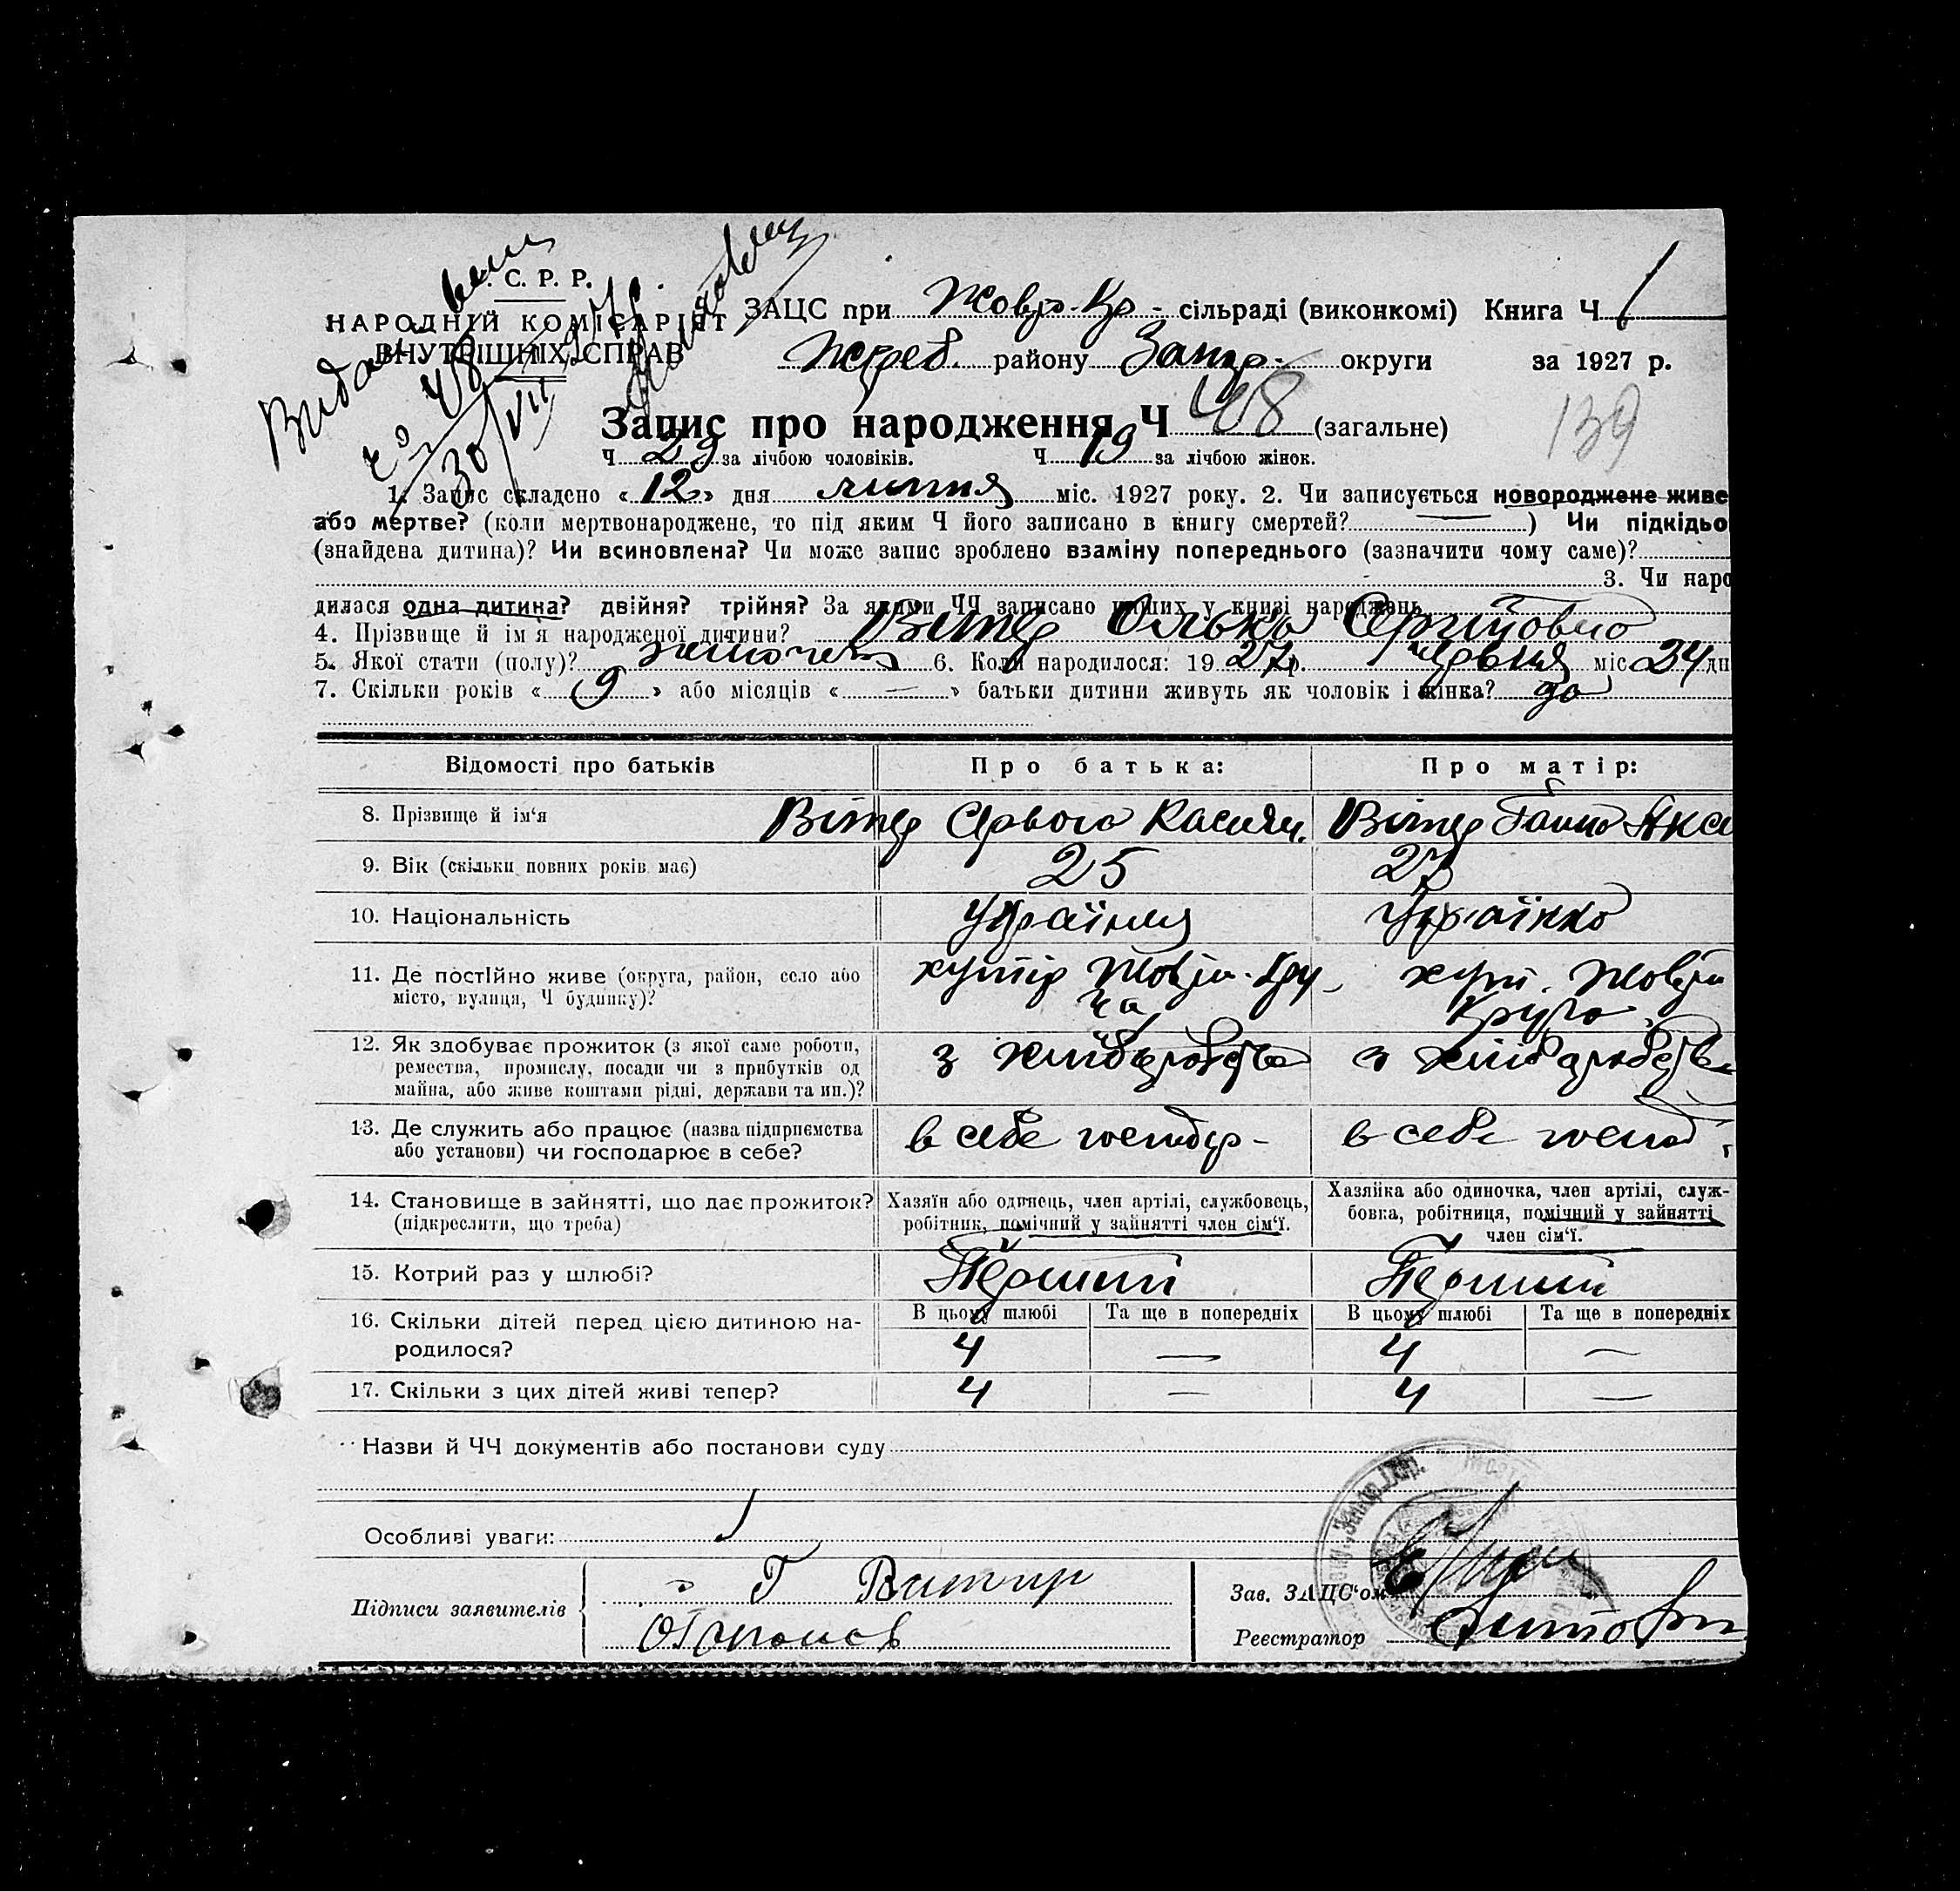 С. Р. Р.
НАРОДНІЙ КОМІСАРІЯТ
ВНУТРІШНІХ СПРАВ
ЗАЦС при Жовто-Кр - сільраді (виконкомі) Книга Ч 1
Жереб. району Запор. округи за 1927 р.
Запис про народження Ч 48 (загальне)
139
Ч 29 за лічбою чоловіків. Ч 19 за лічбою жінок.
1. Запис складено «12» дня липня міс. 1927 року. 2. Чи записується новороджене живе
або мертве? (коли мертвонароджене, то під яким Ч його записано в книгу смертей? — ) Чи підкідьо
(знайдена дитина)? Чи всиновлена? Чи може запис зроблено взаміну попереднього (зазначити чому саме)?
3. Чи наро
дилася одна дитина? двійня? трійня? За якими ЧЧ записано инших у книзі народжень
4. Прізвище й ім'я народженої дитини? Вітер Олька
5. Якої статі (полу)? жіночої 6. Коли народилося: 1927 р. червня міс 24 дн
7. Скільки років « 9 » або місяців « — » батьки дитини живуть як чоловік і жінка? да
Відомості про батьків Про батька: Про матір:
8. Прізвище й ім'я Вітер Касиян. Вітер Ганна Аксе
9. Вік (скільки повних років має) 25 27
10. Національність Українця Українка
11. Де постійно живе (округа, район, село або
місто, вулиця, Ч будинку)?
хутір Жовта-Кру
ча
хут. Жовта
Круча
12. Як здобуває прожиток (з якої саме роботи,
ремества, промислу, посади чи з прибутків од
майна, або живе коштами рідні, держави та ин.)?
з хліборобства з хліборобства
13. Де служить або працює (назва підприємства
або установи) чи господарює в себе?
в себе господар- в себе господ.
14. Становище в зайнятті, що дає прожиток?
(підкреслити, що треба)
Хазяїн або одинець, член артілі, службовець,
робітник, помічний у зайнятті член сім'ї.
Хазяйка або одиночка, член артілі, служ-
бовка, робітниця, помічний у зайнятті
член сім'ї.
15. Котрий раз у шлюбі? Перший Перший
16. Скільки дітей перед цією дитиною на-
родилося?
В цьому шлюбі Та ще в попередніх В цьому шлюбі Та ще в попередніх
4 — 4 —
17. Скільки з цих дітей живі тепер? 4 — 4 —
Назви й ЧЧ документів або постанови суду
Особливі уваги:
Підписи заявителів
Г Витир
Зав. ЗАЦС'ом
Реєстратор